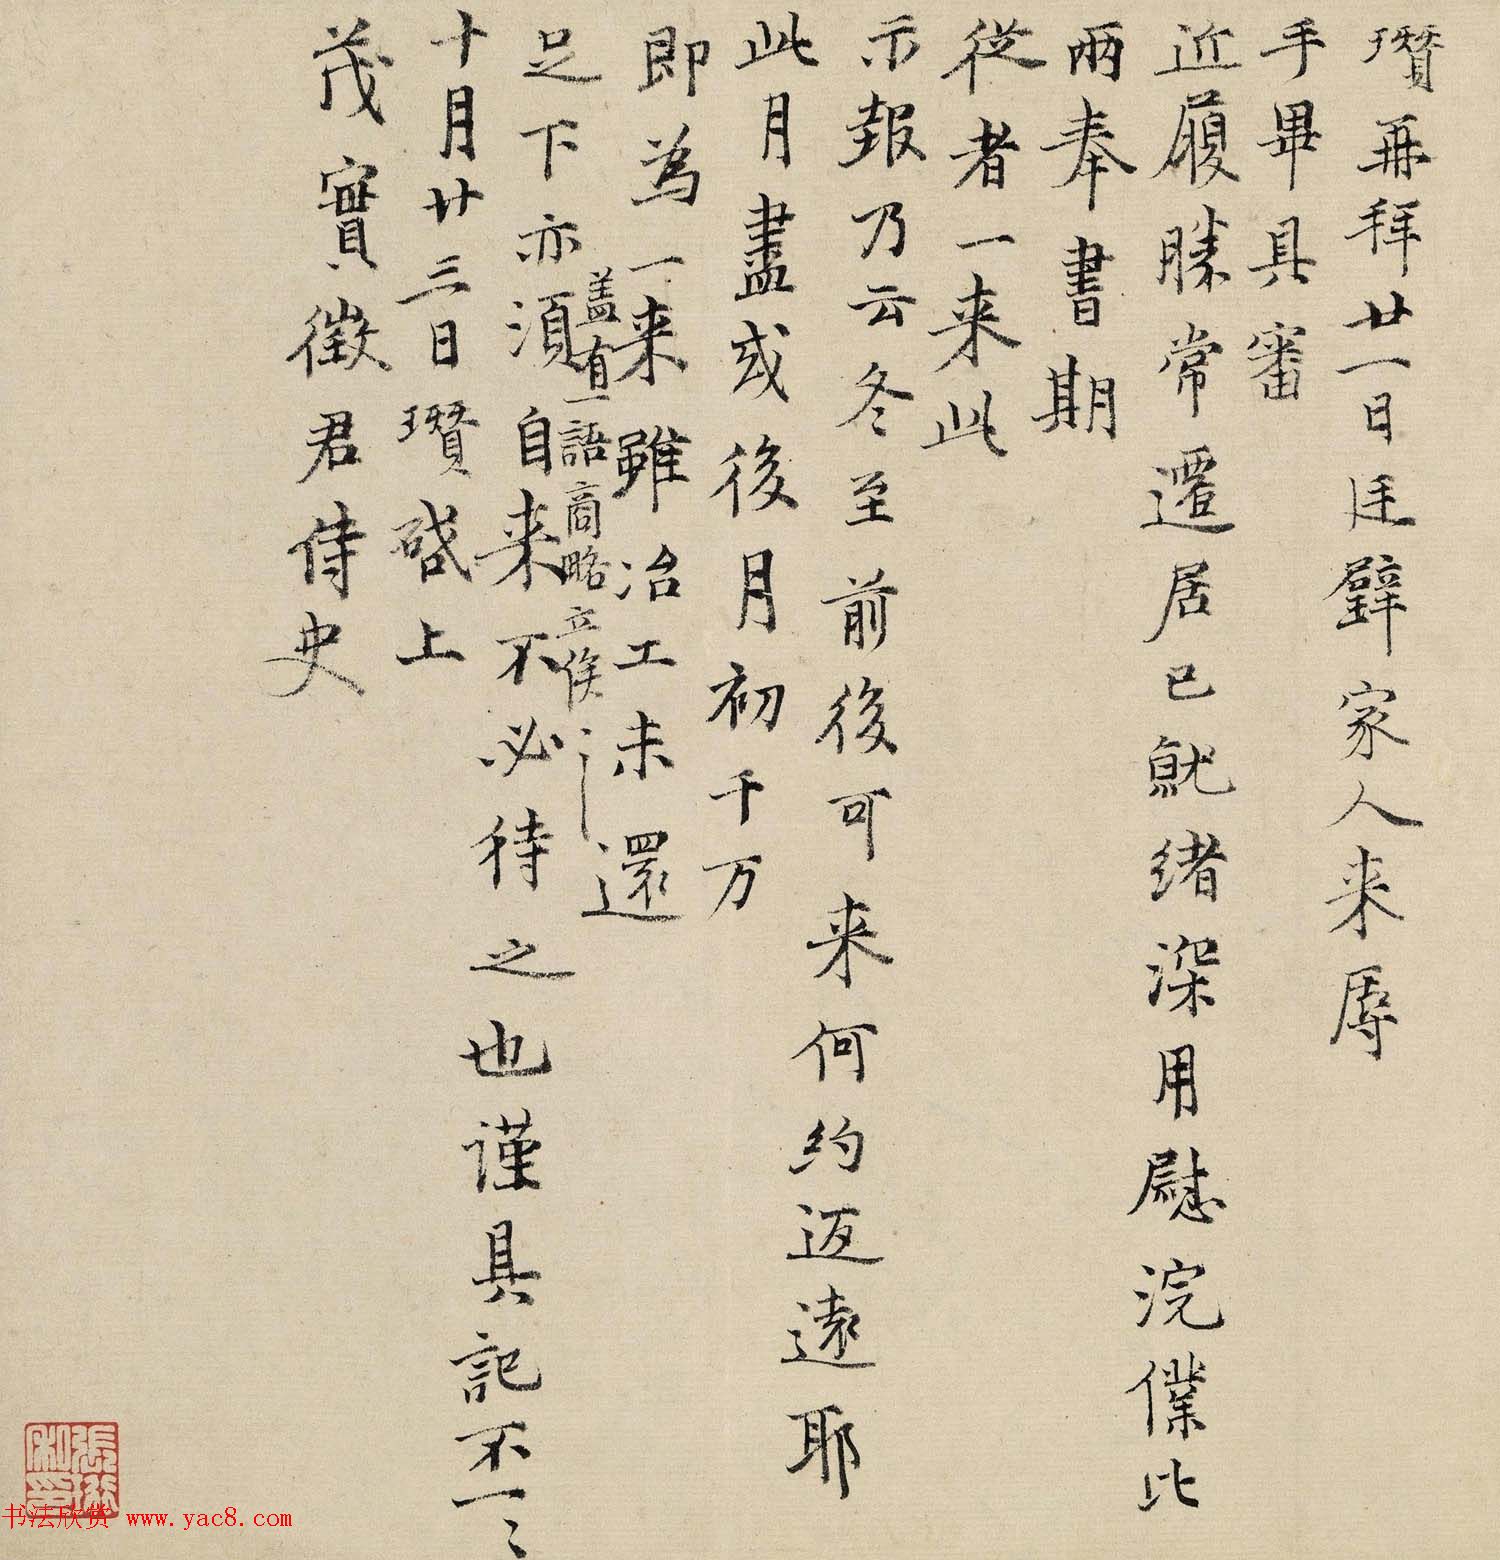 瓚再拜廿一日廷璧家人来辱
手畢具審
近履勝常遷居已就緒深用慰浣僕比
兩奉書期
從者一来此
示報乃云冬至前後可来何約迺遠耶
此月盡或後月初千万
即為一来雖冶工未還
盖有一語商略立俟〻
足下亦須自来不必待之也謹具記不一〻
十月廿三日瓚啓上
茂實徵君侍史
书法欣赏 www.yac8.com